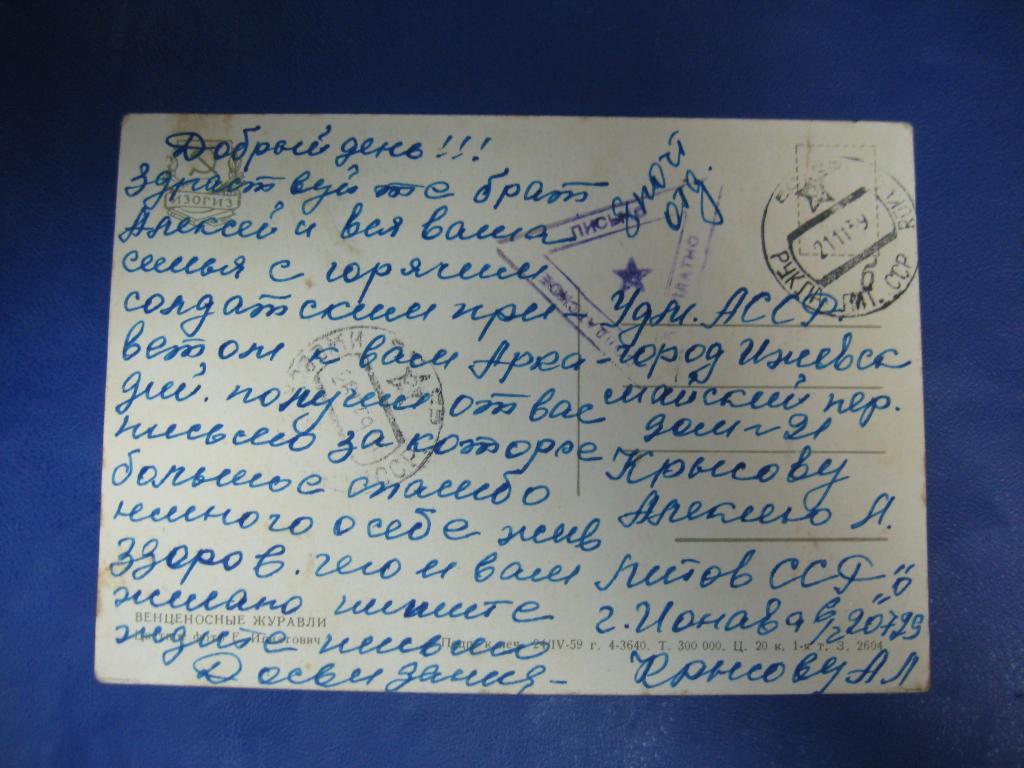 Добрый день!!!
Здраствуйте брат
Алексей и вся ваша
семья с горячим
солдатским при-
ветом к вам Арка-
дий. получил от вас
письмо за которое
большое спасибо
немного о себе жив
здоров. чего и вам
желаю пишите
ждите письма
До свидания-
ИЗОГИЗ
ВЕНЦЕНОСНЫЕ ЖУРАВЛИ
фото Е. Игнатович
24/IV-59 г. 4-3640. Т. 300 000. Ц. 20 к. 1-я т. З. 2604
отд.
ПИСЬМО
21 11 59
РУКЛА ЛИТ. ССР
Удм. АССР.
город Ижевск
майский пер.
дом-21
Крысову
Алексею Л.
Литов ССР
г. Ионава в/ч 20729 "О"
Крысову А Л